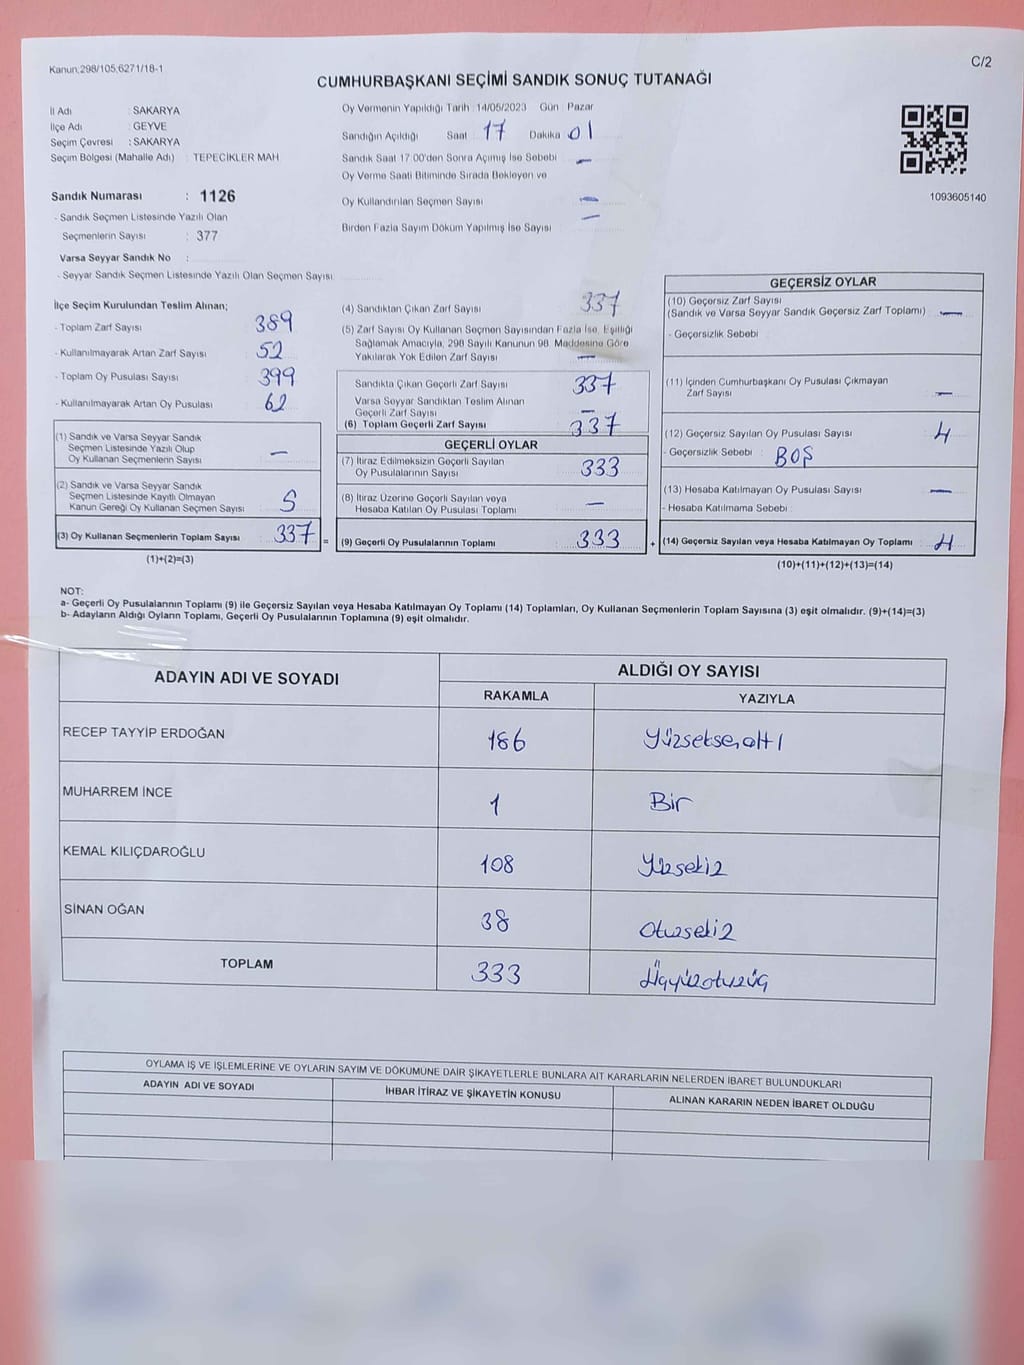 Kanun:298/105,6271/18-1
C/2
CUMHURBAŞKANI SEÇİMİ SANDIK SONUÇ TUTANAĞI
İl Adı : SAKARYA
İlçe Adı : GEYVE
Seçim Çevresi : SAKARYA
Seçim Bölgesi (Mahalle Adı) : TEPECİKLER MAH
Sandık Numarası : 1126
- Sandık Seçmen Listesinde Yazılı Olan
Seçmenlerin Sayısı : 377
Varsa Seyyar Sandık No :
- Seyyar Sandık Seçmen Listesinde Yazılı Olan Seçmen Sayısı
Oy Vermenin Yapıldığı Tarih : 14/05/2023 Gün : Pazar
Sandığın Açıldığı Saat : 17 Dakika 01
Sandık Saat 17:00'den Sonra Açımış İse Sebebi —
Oy Verme Saati Bitiminde Sırada Bekleyen ve
Oy Kullandırılan Seçmen Sayısı —
Birden Fazla Sayım Döküm Yapılmış İse Sayısı —
1093605140
İlçe Seçim Kurulundan Teslim Alınan;
- Toplam Zarf Sayısı 389
- Kullanılmayarak Artan Zarf Sayısı 52
- Toplam Oy Pusulası Sayısı 399
- Kullanılmayarak Artan Oy Pusulası 62
(1) Sandık ve Varsa Seyyar Sandık
Seçmen Listesinde Yazılı Olup
Oy Kullanan Seçmenlerin Sayısı —
(2) Sandık ve Varsa Seyyar Sandık
Seçmen Listesinde Kayıtlı Olmayan
Kanun Gereği Oy Kullanan Seçmen Sayısı 5
(3) Oy Kullanan Seçmenlerin Toplam Sayısı 337 =
(1)+(2)=(3)
(4) Sandıktan Çıkan Zarf Sayısı 337
(5) Zarf Sayısı Oy Kullanan Seçmen Sayısından Fazla İse, Eşitliği
Sağlamak Amacıyla, 298 Sayılı Kanunun 98. Maddesine Göre
Yakılarak Yok Edilen Zarf Sayısı —
Sandıkta Çıkan Geçerli Zarf Sayısı 337
Varsa Seyyar Sandıktan Teslim Alınan
Geçerli Zarf Sayısı —
(6) Toplam Geçerli Zarf Sayısı 337
GEÇERLİ OYLAR
(7) İtiraz Edilmeksizin Geçerli Sayılan
Oy Pusulalarının Sayısı 333
(8) İtiraz Üzerine Geçerli Sayılan veya
Hesaba Katılan Oy Pusulası Toplamı —
(9) Geçerli Oy Pusulalarının Toplamı 333 +
GEÇERSİZ OYLAR
(10) Geçersiz Zarf Sayısı
(Sandık ve Varsa Seyyar Sandık Geçersiz Zarf Toplamı) —
- Geçersizlik Sebebi
(11) İçinden Cumhurbaşkanı Oy Pusulası Çıkmayan
Zarf Sayısı —
(12) Geçersiz Sayılan Oy Pusulası Sayısı 4
- Geçersizlik Sebebi : BOŞ
(13) Hesaba Katılmayan Oy Pusulası Sayısı —
- Hesaba Katılmama Sebebi :
(14) Geçersiz Sayılan veya Hesaba Katılmayan Oy Toplamı 4
(10)+(11)+(12)+(13)=(14)
NOT:
a- Geçerli Oy Pusulalarının Toplamı (9) ile Geçersiz Sayılan veya Hesaba Katılmayan Oy Toplamı (14) Toplamları, Oy Kullanan Seçmenlerin Toplam Sayısına (3) eşit olmalıdır. (9)+(14)=(3)
b- Adayların Aldığı Oyların Toplamı, Geçerli Oy Pusulalarının Toplamına (9) eşit olmalıdır.
ADAYIN ADI VE SOYADI
ALDIĞI OY SAYISI
RAKAMLA YAZIYLA
RECEP TAYYİP ERDOĞAN 186 Yüzseksenaltı
MUHARREM İNCE 1 Bir
KEMAL KILIÇDAROĞLU 108 Yüzsekiz
SİNAN OĞAN 38 Otuzsekiz
TOPLAM 333 Üçyüzotuzüç
OYLAMA İŞ VE İŞLEMLERİNE VE OYLARIN SAYIM VE DÖKÜMÜNE DAİR ŞİKAYETLERLE BUNLARA AİT KARARLARIN NELERDEN İBARET BULUNDUKLARI
ADAYIN ADI VE SOYADI İHBAR İTİRAZ VE ŞİKAYETİN KONUSU ALINAN KARARIN NEDEN İBARET OLDUĞU